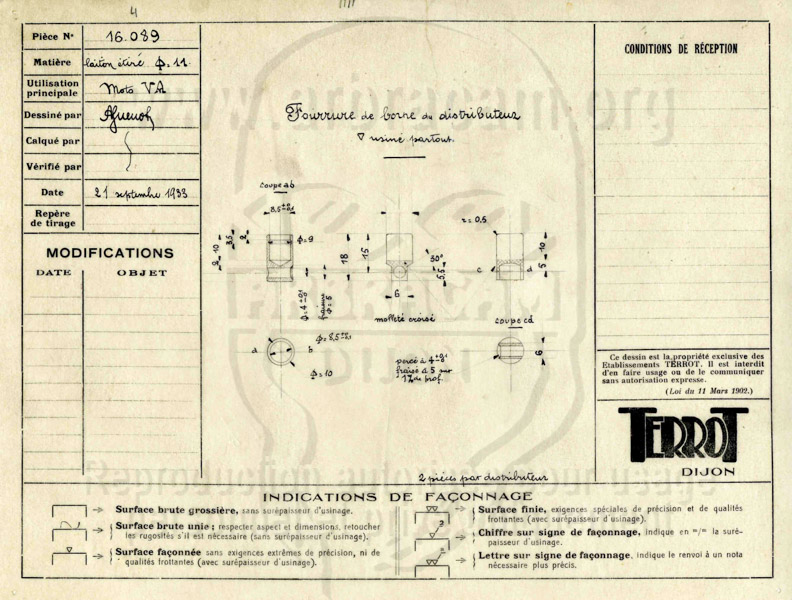 4
Pièce N° 16.089
Matière laiton étiré ϕ=11
Utilisation principale Moto VA
Dessiné par
Calqué par
Vérifié par
Date 21 septembre 1933
Repère de tirage
MODIFICATIONS
DATE OBJET
Fourrure de borne du distributeur
∇ usiné partout.
coupe ab
8,5
3,5
2
10
2
ϕ=9
18
15
ϕ=4
fraisure ϕ=5
30°
5,5
6
r=0,5
10
5
c
d
molleté croisé
coupe cd
a
b
ϕ=8,5
ϕ=10
6
percé à 4
fraisé à 5 sur
1 m/m de prof.
2 pièces par distributeur
CONDITIONS DE RÉCEPTION
Ce dessin est la propriété exclusive des
Etablissements TERROT. Il est interdit
d'en faire usage ou de le communiquer
sans autorisation expresse.
(Loi du 11 Mars 1902.)
TERROT
DIJON
INDICATIONS DE FAÇONNAGE
Surface brute grossière, sans surépaisseur d'usinage.
Surface brute unie; respecter aspect et dimensions, retoucher
les rugosités s'il est nécessaire (sans surépaisseur d'usinage).
Surface façonnée sans exigences extrêmes de précision, ni de
qualités frottantes (avec surépaisseur d'usinage).
Surface finie, exigences spéciales de précision et de qualités
frottantes (avec surépaisseur d'usinage).
Chiffre sur signe de façonnage, indique en m/m la suré-
paisseur d'usinage.
Lettre sur signe de façonnage, indique le renvoi à un nota
nécessaire plus précis.